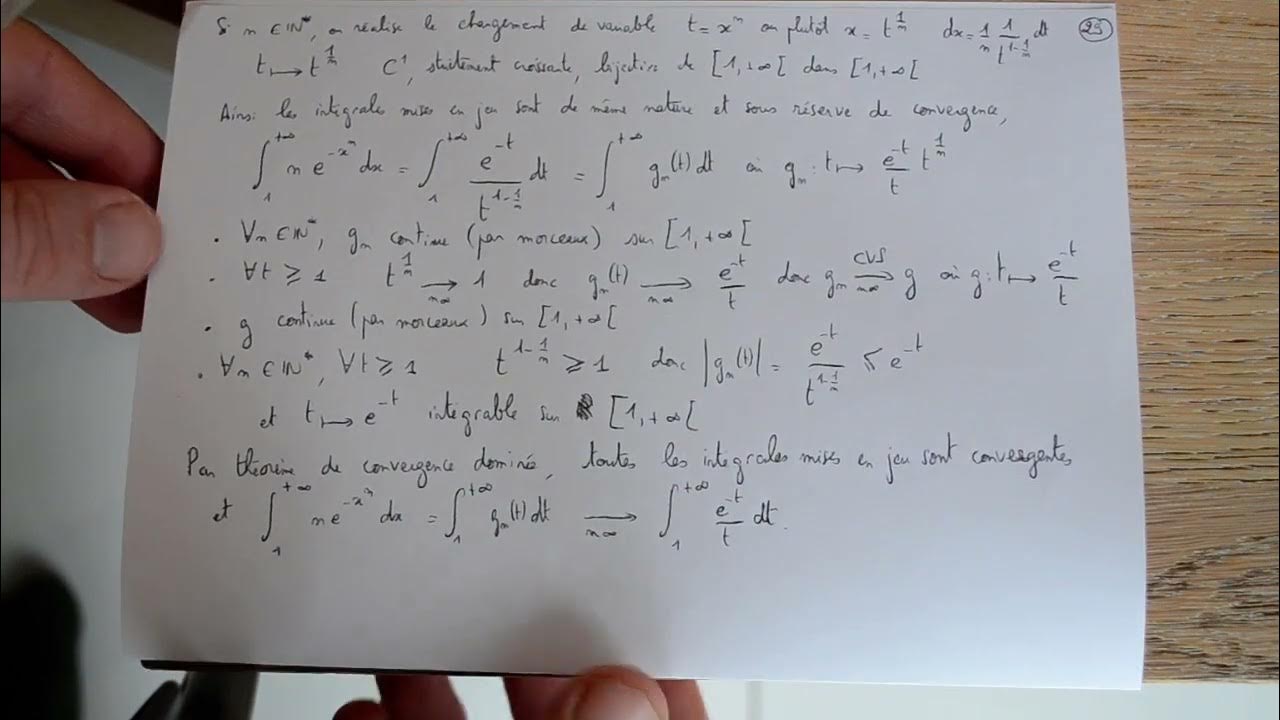 Si n ∈ ℕ*, on réalise le changement de variable t = xⁿ ou plutôt x = t^{1/n} dx = 1/n 1/t^{1-1/n} dt (25)
t ↦ t^{1/n} C¹, strictement croissante, bijective de [1,+∞[ dans [1,+∞[
Ainsi les intégrales mises en jeu sont de même nature et sous réserve de convergence,
∫_1^{+∞} n e^{-xⁿ} dx = ∫_1^{+∞} e^{-t}/t^{1-1/n} dt = ∫_1^{+∞} g_n(t) dt où g_n : t ↦ e^{-t}/t t^{1/n}
. ∀n ∈ ℕ*, g_n continue (par morceaux) sur [1,+∞[
. ∀t ⩾ 1 t^{1/n} →_{n∞} 1 donc g_n(t) →_{n∞} e^{-t}/t donc g_n →^{CVS}_{n∞} g où g : t ↦ e^{-t}/t
. g continue (par morceaux) sur [1,+∞[
. ∀n ∈ ℕ*, ∀t ⩾ 1 t^{1-1/n} ⩾ 1 donc |g_n(t)| = e^{-t}/t^{1-1/n} ⩽ e^{-t}
et t ↦ e^{-t} intégrable sur [1,+∞[
Par théorème de convergence dominée, toutes les intégrales mises en jeu sont convergentes
et ∫_1^{+∞} n e^{-xⁿ} dx = ∫_1^{+∞} g_n(t) dt →_{n∞} ∫_1^{+∞} e^{-t}/t dt.